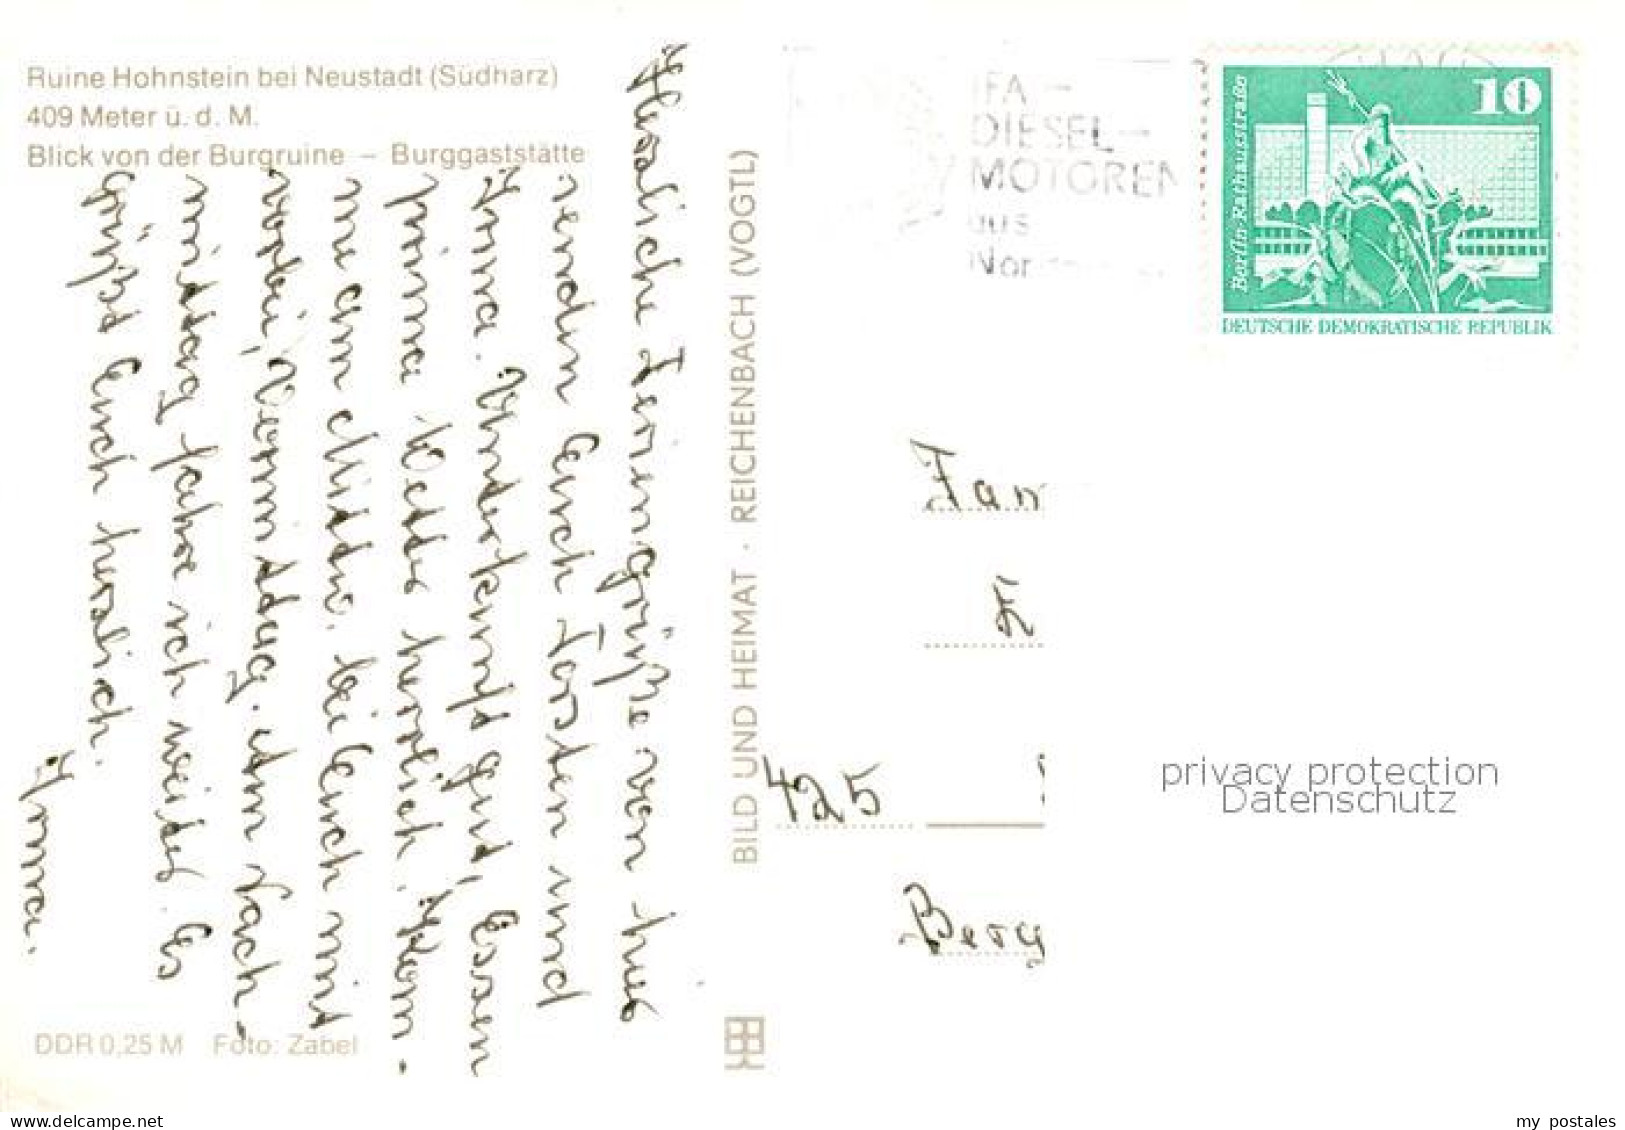 Ruine Hohnstein bei Neustadt (Südharz)
409 Meter ü. d. M.
Blick von der Burgruine – Burggaststätte
Herzliche Feriengrüße von hier
senden Euch Torsten und
Hanna. Unterkunft gut, Essen
prima Wetter herrlich. Kom-
me am Mittw. bei Euch mit
vorbei, Vormittag. Am Nach-
mittag fahre ich weiter. Es
grüßt Euch herzlich.
Hanna.
DDR 0,25 M Foto: Zabel
BILD UND HEIMAT · REICHENBACH (VOGTL)
IFA –
DIESEL –
MOTOREN
aus
Nor
10
Berlin-Rathausstraße
DEUTSCHE DEMOKRATISCHE REPUBLIK
Fam
425
Berg
privacy protection
Datenschutz
delcampe.net
my_postales